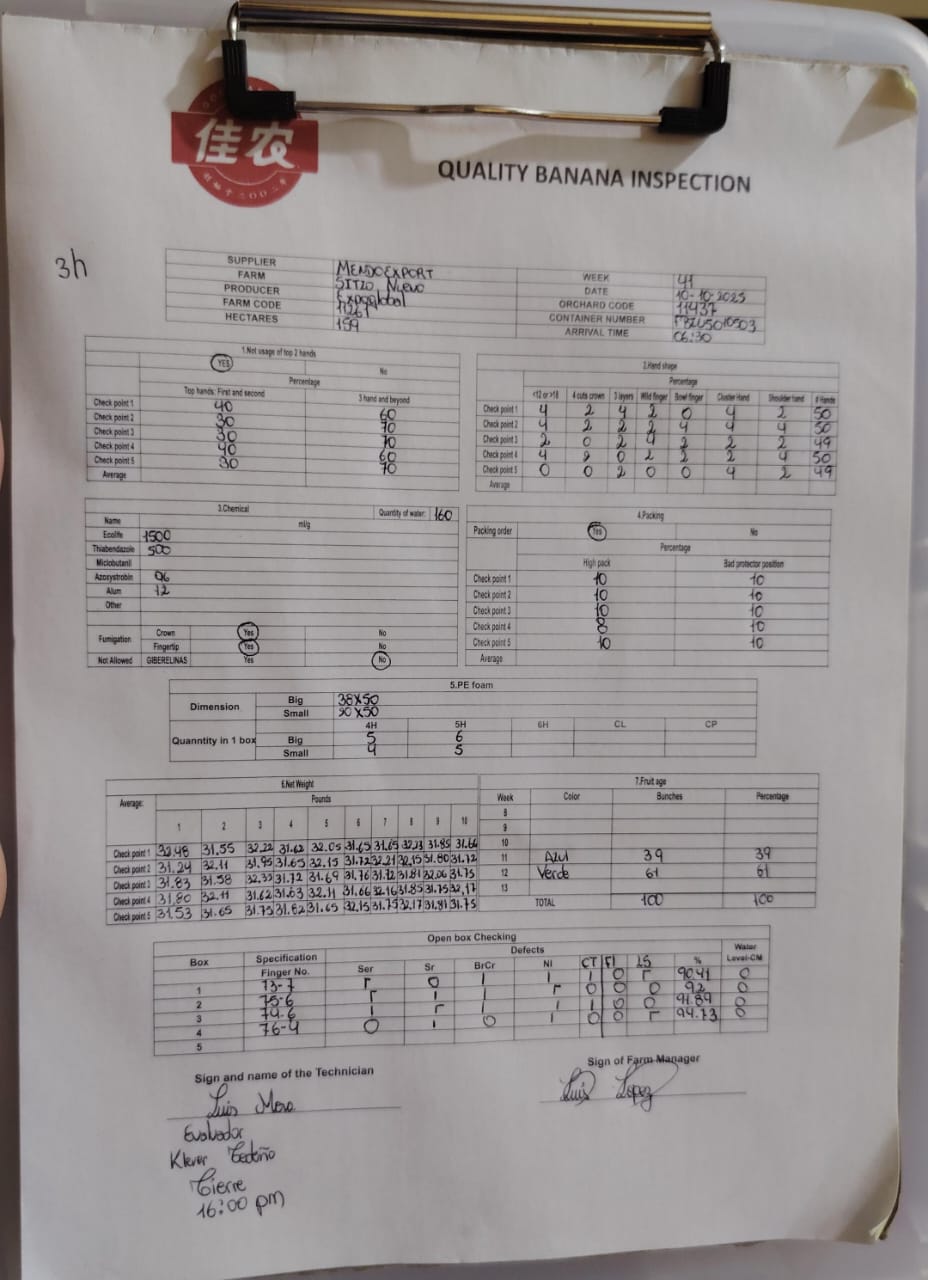 佳农
QUALITY BANANA INSPECTION
3h
SUPPLIER MENDOEXPORT
FARM SITIO Nuevo WEEK 41
PRODUCER Expoglobal DATE 10-10-2025
FARM CODE ORCHARD CODE 11437
HECTARES 159 CONTAINER NUMBER
ARRIVAL TIME 06:30
1.Not usage of top 2 hands
YES No
Percentage
Top hands: First and second 3 hand and beyond
Check point 1 40 60
Check point 2 30 70
Check point 3 30 70
Check point 4 40 60
Check point 5 30 70
Average
2.Hand shape
Percentage
<12 or >18 4 cuts crown 3 layers Wild finger Bowl finger Cluster Hand Shoulder hand # Hands
Check point 1 4 2 4 2 0 4 2 50
Check point 2 4 2 2 2 4 4 4 50
Check point 3 2 0 2 4 2 2 2 49
Check point 4 4 2 0 2 2 2 4 50
Check point 5 0 0 2 0 0 4 2 49
Average
3.Chemical Quantity of water: 160
Name ml/g
Ecolife 1500
Thiabendazole 500
Miclobutanil
Azoxystrobin 96
Alum 12
Other
Fumigation Crown Yes No
Fingertip Yes No
Not Allowed GIBERELINAS Yes No
4.Packing
Packing order Yes No
Percentage
High pack Bad protector position
Check point 1 10 10
Check point 2 10 10
Check point 3 10 10
Check point 4 8 10
Check point 5 10 10
Average
5.PE foam
Dimension Big 38x50
Small 90x50
4H 5H 6H CL CP
Quanntity in 1 box Big 5 6
Small 4 5
6.Net Weight
Average: Pounds
1 2 3 4 5 6 7 8 9 10
Check point 1 32.48 31.55 32.22 31.62 32.05 31.65 31.65 32.23 31.85 31.66
Check point 2 31.24 32.11 31.95 31.65 32.15 31.72 32.21 32.15 31.80 31.72
Check point 3 31.83 31.58 32.33 31.72 31.69 31.76 31.72 31.81 32.06 31.75
Check point 4 31.80 32.11 31.62 31.63 32.11 31.66 32.16 31.85 31.75 32.17
Check point 5 31.53 31.65 31.75 31.82 31.65 32.15 31.75 32.17 31.81 31.75
7.Fruit age
Week Color Bunches Percentage
8
9
10
11 Azul 39 39
12 Verde 61 61
13
TOTAL 100 100
Open box Checking
Box Specification Defects Water
Finger No. Ser Sr BrCr NI CT FI LS % Level-CM
1 73-7 r 0 1 1 1 0 r 90.41 0
2 75-6 r 1 1 r 0 0 0 92 0
3 74-6 1 r 1 1 1 0 0 91.89 0
4 76-4 0 1 0 1 0 0 r 94.73 0
5
Sign and name of the Technician
Luis Mora
Sign of Farm Manager
Luis Lopez
Evaluador
Klever Cedeño
Cierre
16:00 pm